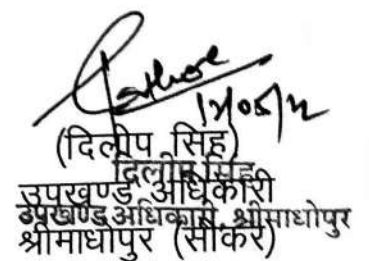 Rathore
(दिलीप सिंह)
दिलीप सिंह
उपखण्ड अधिकारी
उपखण्ड अधिकारी, श्रीमाधोपुर
श्रीमाधोपुर (सीकर)